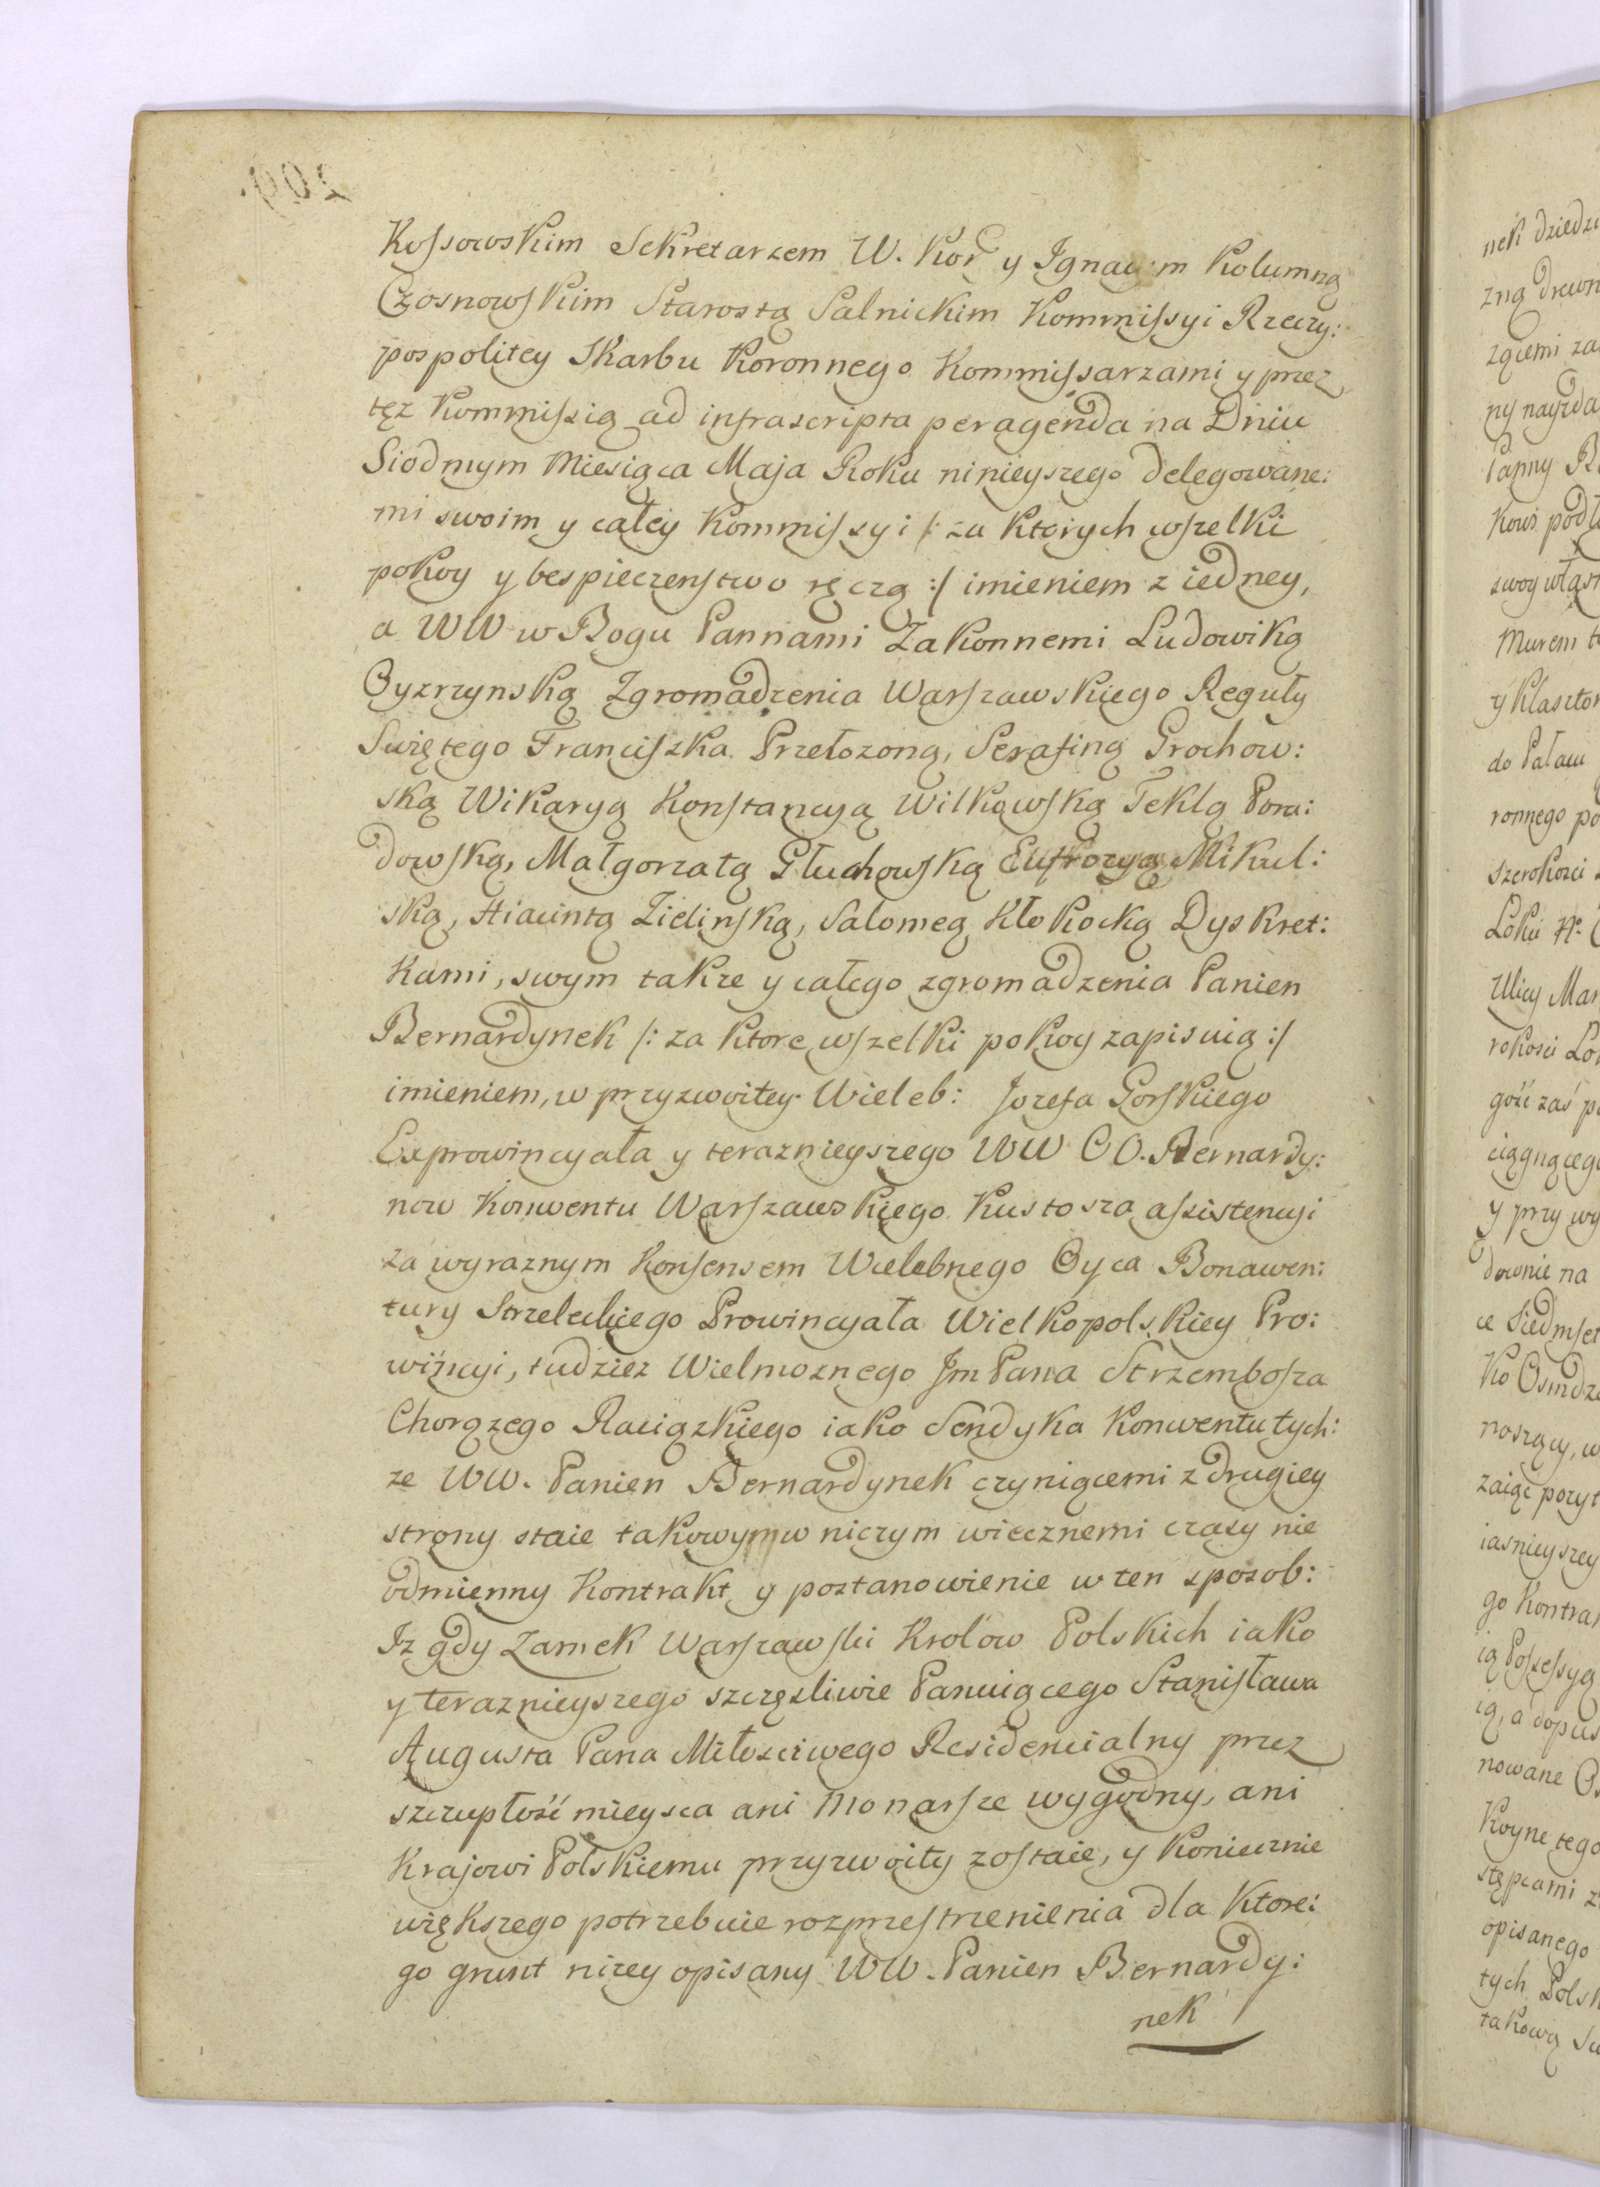 Kossowskim Sekretarzem W. Kor. y Ignacym Kolumną
Czosnowskim Starostą Salnickim Kommissyi Rzeczy:
pospolitey Skarbu Koronnego Kommissarzami y przez
tęz Kommissią ad infrascripta peragenda na Dniu
Siodmym Miesiąca Maja Roku ninieyszego delegowane:
mi swoim y całey Kommissyi /: za ktorych wszelki
pokoy y bespieczenstwo ręczą :/ imieniem z iedney,
a WW w Bogu Pannami Zakonnemi Ludowiką
Oyzrzynską Zgromadzenia Warszawskiego Reguły
Swiętego Franciszka Przełozoną, Serafiną Grochow:
ską Wikaryą Konstancyą Wilkowską Teklą Pora:
dowską, Małgorzatą Głuchowską Eufrozyą Mikul:
ską, Hiacintą Zielinską, Salomeą Kłokocką Dyskret:
kami, swym takze y całego zgromadzenia Panien
Bernardynek /: za ktore wszelki pokoy zapisuią :/
imieniem, w przyzwoitey Wieleb: Jozefa Gorskiego
Exprowincyała y teraznieyszego WW OO. Bernardy:
now Konwentu Warszawskiego Kustosza assistencyi
za wyraznym Konsensem Wielebnego Oyca Bonawen:
tury Strzeleckiego Prowincyała Wielkopolskiey Pro:
wincyi, tudziez Wielmoznego Jm Pana Strzembosza
Chorązego Raciązkiego iako Sendyka Konwentu tych:
ze WW. Panien Bernardynek czyniącemi z drugiey
strony staie takowym w niczym wiecznemi czasy nie
odmienny Kontrakt y postanowienie w ten sposob:
Iz gdy Zamek Warszawski Krolow Polskich iako
y teraznieyszego szczęsliwie Panuiącego Stanisława
Augusta Pana Miłosciwego Residencialny przez
szczupłość mieysca ani Monarsze wygodny, ani
Krajowi Polskiemu przyzwoity zostaie, y koniecznie
większego potrzebuie rozprzestrzenienia dla ktore:
go grunt nizey opisany WW. Panien Bernardy:
nek
209.
nek dziedzi
zną drewn
zgiemi za
ny nayzda
Panny
kowi podl
swoy włas
Murem
y Klasztor
do Pałacu
ronnego po
szerokosci
Loku No
Ulicy Mar
rokosci Lo
gość zaś p
ciągnącego
y przy wy
downie na
ce Siedmset
ko Osmdz
noszący, w
zaiąć pozyt
iasnieyszey
go Kontra
ią Possessyą
ią, a dopus
nowane
Koyne tego
stępcami z
opisanego
tych Polsk
takową